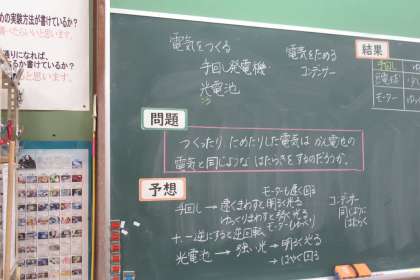 めの実験方法が書けているか?
べたらいいと思います。
通りになれば、
るか書けているか?
ると思います。
電気をつくる
手回し発電機
光電池
電気をためる
コンデンサー
結果
手回し
光電池
モーター
問題
つくったり ためたりした電気は かん電池の
電気と同じような はたらきをするのだろうか。
予想
モーターも速く回る
手回し→速くまわすと明るく光る
ゆっくりまわすと弱く光る
モーターもゆっくり
+-逆にすると逆回転
光電池→強い光→明るく光る
→はやく回る
コンデンサー
同じように
はたらく